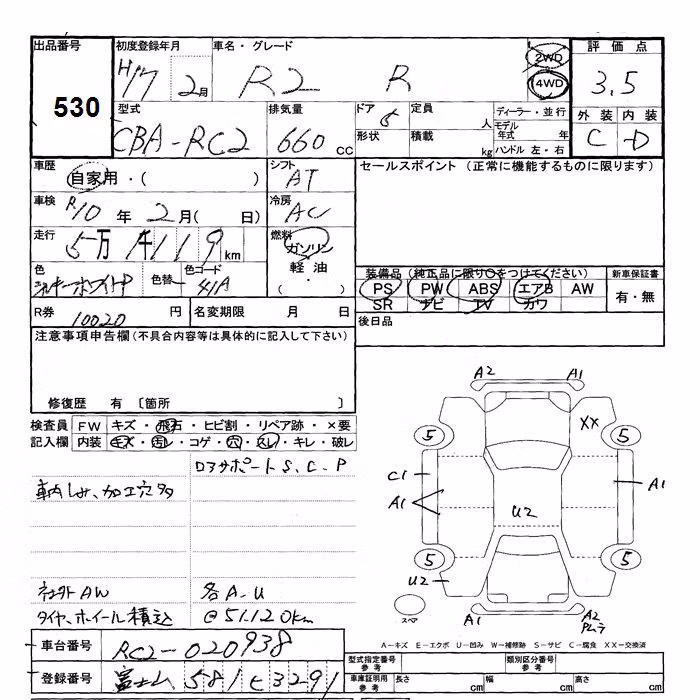 出品番号 初度登録年月 車名・グレード 評価点
530 H17 2月 R2 R 2WD 4WD 3.5
型式 排気量 ドア 定員 ディーラー・並行 外装 内装
CBA-RC2 660 cc 5 人 モデル年式 年 C D
形状 積載 kg ハンドル 左・右
車歴 シフト セールスポイント (正常に機能するものに限ります)
自家用・( ) AT
車検 冷房
R10年 2月( 日) AC
走行 燃料
5万 119 km ガソリン
色 色替 色コード 軽油 装備品 (純正品に限り○をつけてください) 新車保証書
41A ・( ) PS PW ABS エアB AW 有・無
SR ナビ TV カワ
R券 10020 円 名変期限 月 日 後日品
注意事項申告欄(不具合内容等は具体的に記入して下さい)
修復歴 有 〔箇所 〕
検査員 FW キズ・飛石・ヒビ割・リペア跡・×要
記入欄 内装 キズ・汚レ・コゲ・穴・スレ・キレ・破レ
ロアサポート S、C、P
車内しみ、加工穴多
社外AW 各A-U
タイヤ、ホイール積込 @51120km
車台番号 RC2-020938
登録番号 富士山 581 と 3291
A2 A1
XX
5 5
C1 A1 A1
U2
5 5
U2
スペア A1 A2
A-キズ E-エクボ U-凹み W-補修跡 S-サビ C-腐食 XX-交換済
型式指定番号 参考 類別区分番号 参考
車庫証明用 参考 長さ cm 幅 cm 高さ cm